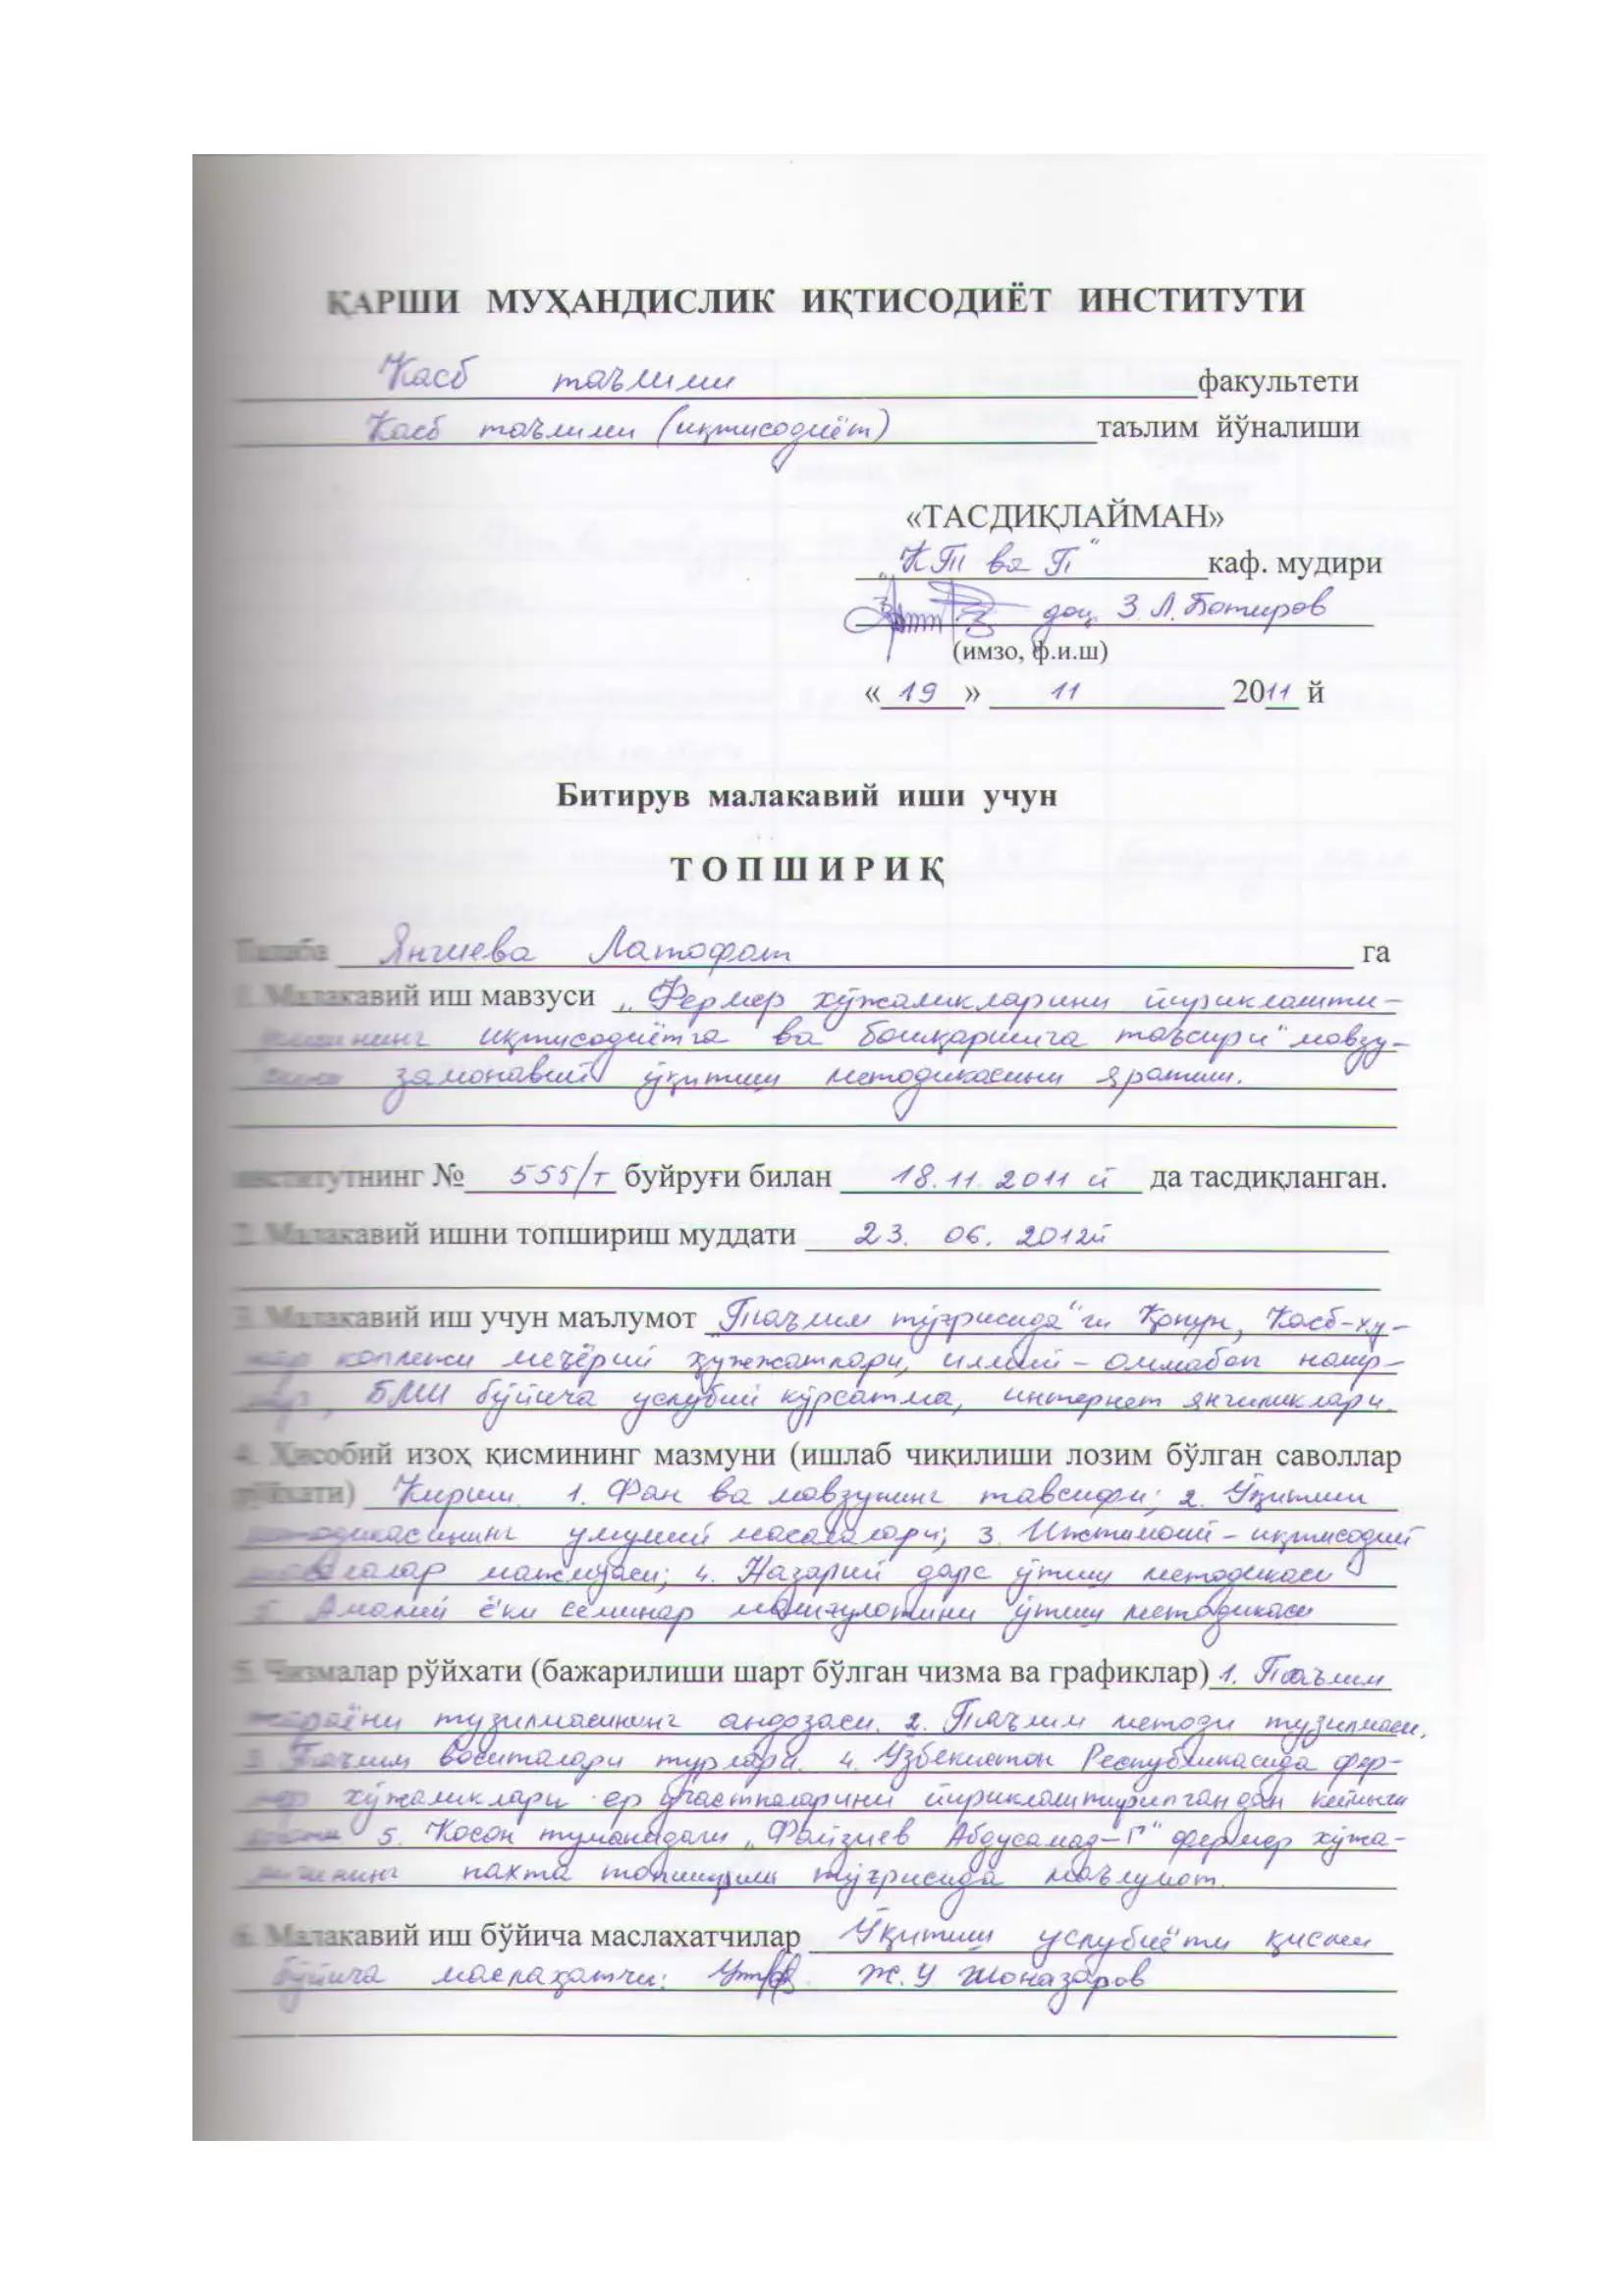 ҚАРШИ МУҲАНДИСЛИК ИҚТИСОДИЁТ ИНСТИТУТИ
Касб таълими факультети
Касб таълими (иқтисодиёт) таълим йўналиши
«ТАСДИҚЛАЙМАН»
„КТ ва П“ каф. мудири
доц. З.Л. Ботиров
(имзо, ф.и.ш)
«19» 11 2011 й
Битирув малакавий иши учун
ТОПШИРИҚ
Талаба Янгиева Латофат га
1. Малакавий иш мавзуси „Фермер хўжаликларини йириклашти-
ришининг иқтисодиётга ва бошқаришга таъсири“ мавзу-
замонавий ўқитиш методикасини яратиш.
институтнинг № 555/т буйруғи билан 18.11.2011 й да тасдиқланган.
2. Малакавий ишни топшириш муддати 23. 06. 2012й
3. Малакавий иш учун маълумот „Таълим тўғрисида“ги Қонун, Касб-ҳу-
нар коллежи меъёрий ҳужжатлари, илмий-оммабоп нашр-
лар, БМИ бўйича услубий кўрсатма, интернет янгиликлари.
4. Ҳисобий изоҳ қисмининг мазмуни (ишлаб чиқилиши лозим бўлган саволлар
рўйхати) Кириш. 1. Фан ва мавзунинг тавсифи; 2. Ўқитиш
методикасининг умумий масалалари; 3. Ижтимоий-иқтисодий
масалалар мажмуаси; 4. Назарий дарс ўтиш методикаси
5. Амалий ёки семинар машғулотини ўтиш методикаси
5. Чизмалар рўйхати (бажарилиши шарт бўлган чизма ва графиклар) 1. Таълим
жараёни тузилмасининг андозаси. 2. Таълим методи тузилмаси.
3. Таълим воситалари турлари. 4. Ўзбекистон Республикасида фер-
мер хўжаликлари ер участкаларини йириклаштирилгандан кейинги
ҳолати 5. Косон туманидаги „Файзиев Абдусамад-Г“ фермер хўжа-
лигининг пахта топшириш тўғрисида маълумот.
6. Малакавий иш бўйича маслахатчилар Ўқитиш услубиёти қисми
бўйича маслаҳатчи: Ж.У Жоназаров